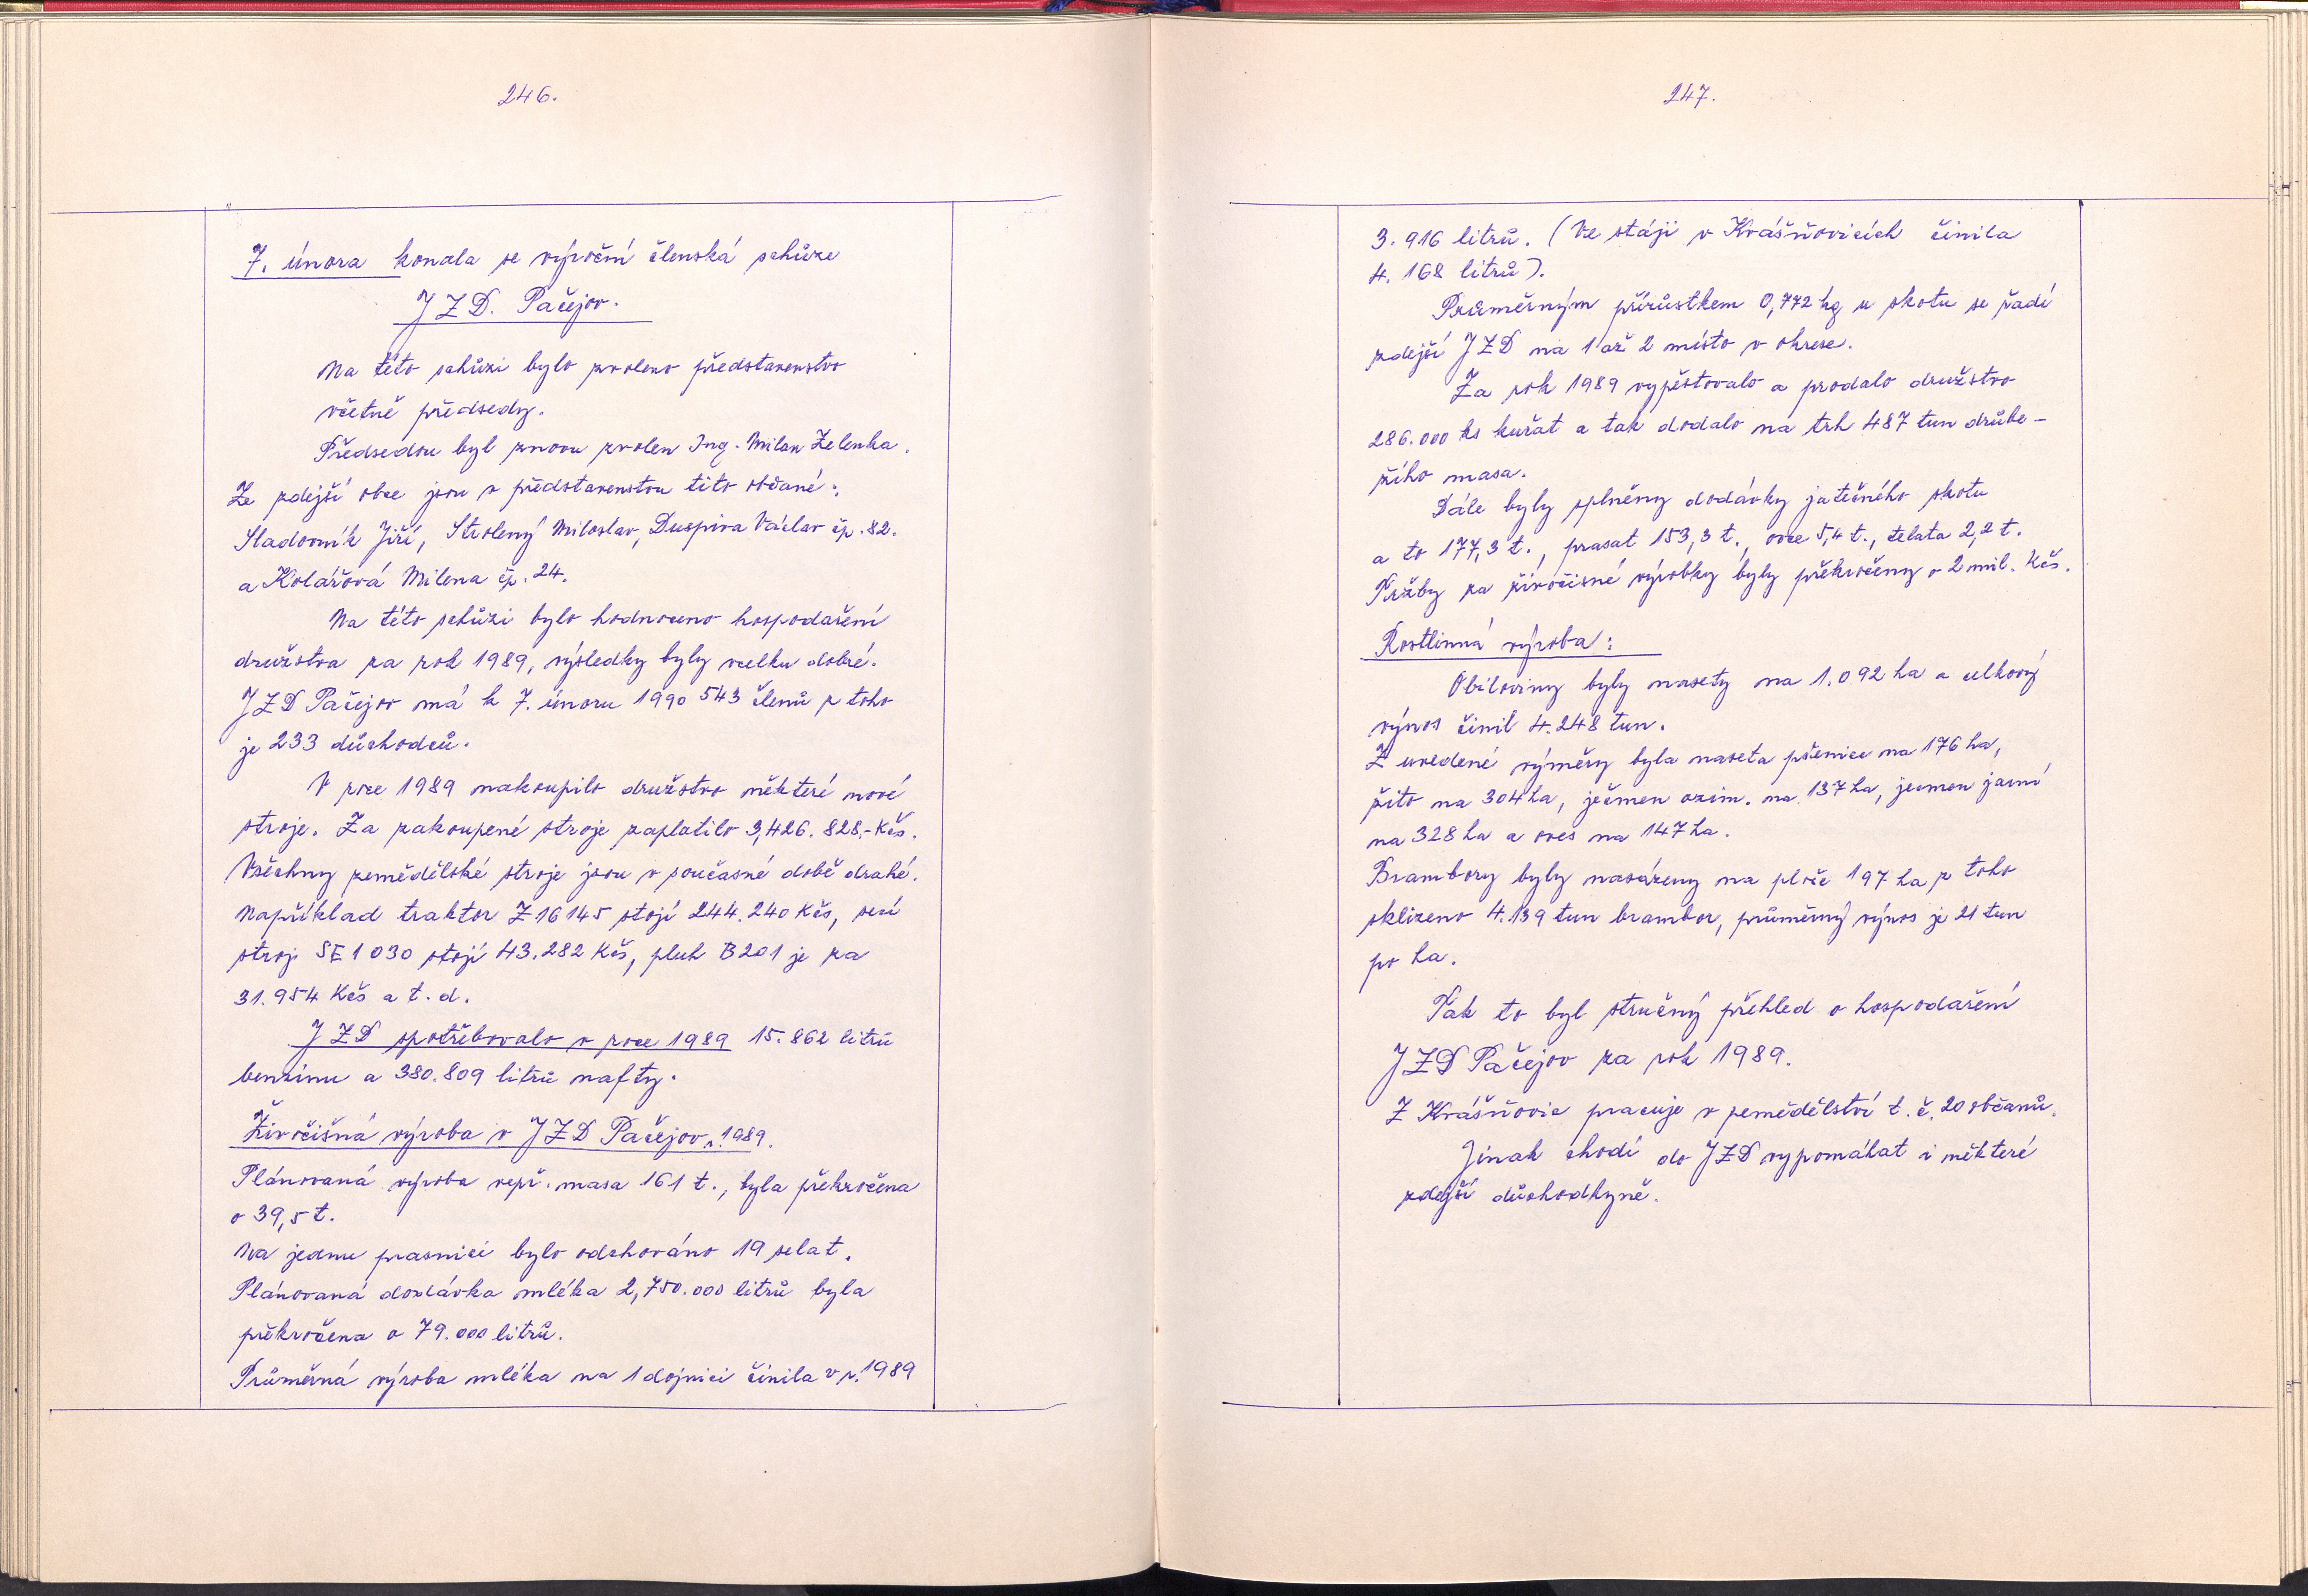 246.
7. února konala se výroční členská schůze
JZD. Pačejov.
Na této schůzi bylo zvoleno představenstvo
včetně předsedy.
Předsedou byl znovu zvolen Ing. Milan Zelenka.
Ze zdejší obce jsou v představenstvu tito občané:
Sladovník Jiří, Strolený Miloslav, Duspiva Václav čp. 82.
a Kolářová Milena čp. 24.
Na této schůzi bylo hodnoceno hospodaření
družstva za rok 1989, výsledky byly vcelku dobré.
JZD Pačejov má k 7. únoru 1990 543 členů z toho
je 233 důchodců.
V roce 1989 nakoupilo družstvo některé nové
stroje. Za zakoupené stroje zaplatilo 3,426.828,- Kčs.
Všechny zemědělské stroje jsou v současné době drahé.
Například traktor Z 16145 stojí 244.240 Kčs, secí
stroj SE1030 stojí 43.282 Kčs, pluh B201 je za
31.954 Kčs a t.d.
JZD spotřebovalo v roce 1989 15.862 litrů
benzinu a 380.809 litrů nafty.
Živočišná výroba v JZD Pačejov r. 1989.
Plánovaná výroba vepř. masa 161 t., byla překročena
o 39,5 t.
Na jednu prasnici bylo odchováno 19 selat.
Plánovaná dodávka mléka 2,750.000 litrů byla
překročena o 79.000 litrů.
Průměrná výroba mléka na 1 dojnici činila v r. 1989
247.
3.916 litrů. (Ve stáji v Krášňovicích činila
4.168 litrů).
Průměrným přírůstkem 0,772 kg u skotu se řadí
zdejší JZD na 1 až 2 místo v okrese.
Za rok 1989 vypěstovalo a prodalo družstvo
286.000 ks kuřat a tak dodalo na trh 487 tun drůbe-
žího masa.
Dále byly splněny dodávky jatečného skotu
a to 177,3 t., prasat 153,3 t., ovce 5,4 t., telata 2,2 t.
Tržby za živočisné výrobky byly překročeny o 2 mil. Kčs.
Rostlinná výroba:
Obiloviny byly nasety na 1.092 ha a celkový
výnos činil 4.248 tun.
Z uvedené výměry byla naseta pšenice na 176 ha,
žito na 304 ha, ječmen ozim. na 137 ha, jecmen jarní
na 328 ha a oves na 147 ha.
Brambory byly nasázeny na ploše 197 ha z toho
sklizeno 4.139 tun brambor, průměrný výnos je 21 tun
po ha.
Tak to byl stručný přehled o hospodaření
JZD Pačejov za rok 1989.
Z Krášňovic pracuje v zemědělství t.č. 20 občanů.
Jinak chodí do JZD vypomáhat i některé
zdejší důchodkyně.